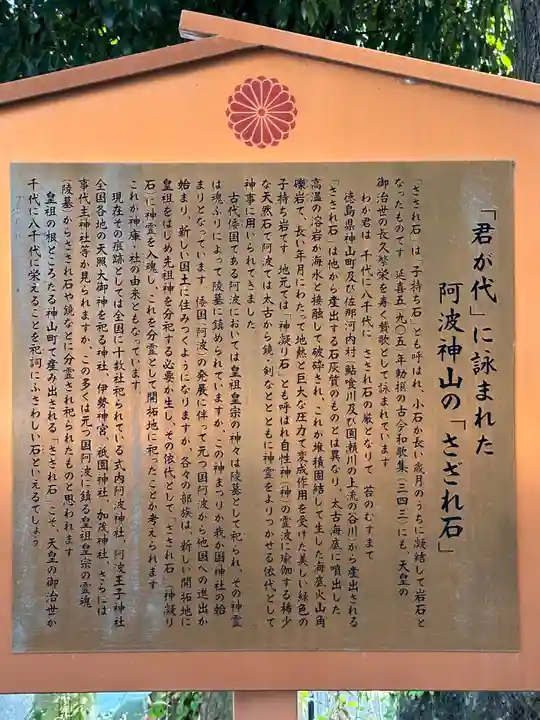 「君が代」に詠まれた
阿波神山の「さざれ石」
「さざれ石」は「子持ち石」とも呼ばれ、小石が長い歳月のうちに凝結して岩石と
なったものです 延喜五(九〇五)年勅撰の古今和歌集(三四三)にも、天皇の
御治世の長久繁栄を寿く賛歌として詠まれています
わか君は 千代に八千代に さざれ石の巌となりて 苔のむすまで
徳島県神山町及び佐那河内村(鮎喰川及び園瀬川の上流の谷川)から産出される
「さざれ石」は他から産出する石灰質のものとは異なり、太古海底に噴出した
高温の溶岩が海水と接触して破砕され、これが堆積固結して生した海底火山角
礫岩で、長い年月にわたって地熱と巨大な圧力で変成作用を受けた美しい緑色の
子持ち岩です 地元では「神凝り石」とも呼ばれ自性神(神の霊波に瑜伽する稀少
な天然石)で阿波では太古から鏡、剣などとともに神霊をよりつかせる依代として
神事に用いられてきました
古代倭国である阿波においては皇祖皇宗の神々は陵墓として祀られ、その神霊
は魂ふりによって陵墓に鎮められていますが、この神まつりか我か国神社の始
まりとなっています 倭国(阿波)の発展に伴って元つ国阿波から他国への進出か
始まり、新しい国土に住みつくようになりますか、各々の部族は、新しい開拓地に
皇祖をはじめ先祖神を分祀する必要か生し、その依代として「さざれ石」(神凝り
石)に神霊を入魂し、これを分霊として開拓地に祀ったことか考えられます
これか神庫、社の由来ともなっています
現在その痕跡としては全国に十数社祀られている式内阿波神社、阿波王子神社
全国各地の天照大御神を祀る神社、伊勢神宮、祇園神社、加茂神社、さらには
事代主神社等か見られますか、この多くは元つ国阿波に鎮る皇祖皇宗の霊魂
(陵墓)からさざれ石や鏡などに分霊され祀られたものと思われます
皇祖の根ところたる神山町で産み出される「さざれ石」こそ、天皇の御治世か
千代に八千代に栄えることを祀詞にふさわしい石といえるでしょう